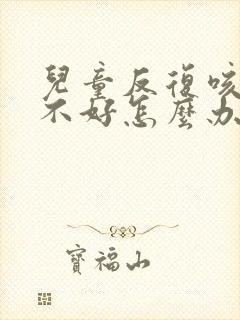 兒童反復咳
不好怎麼办
寶福山